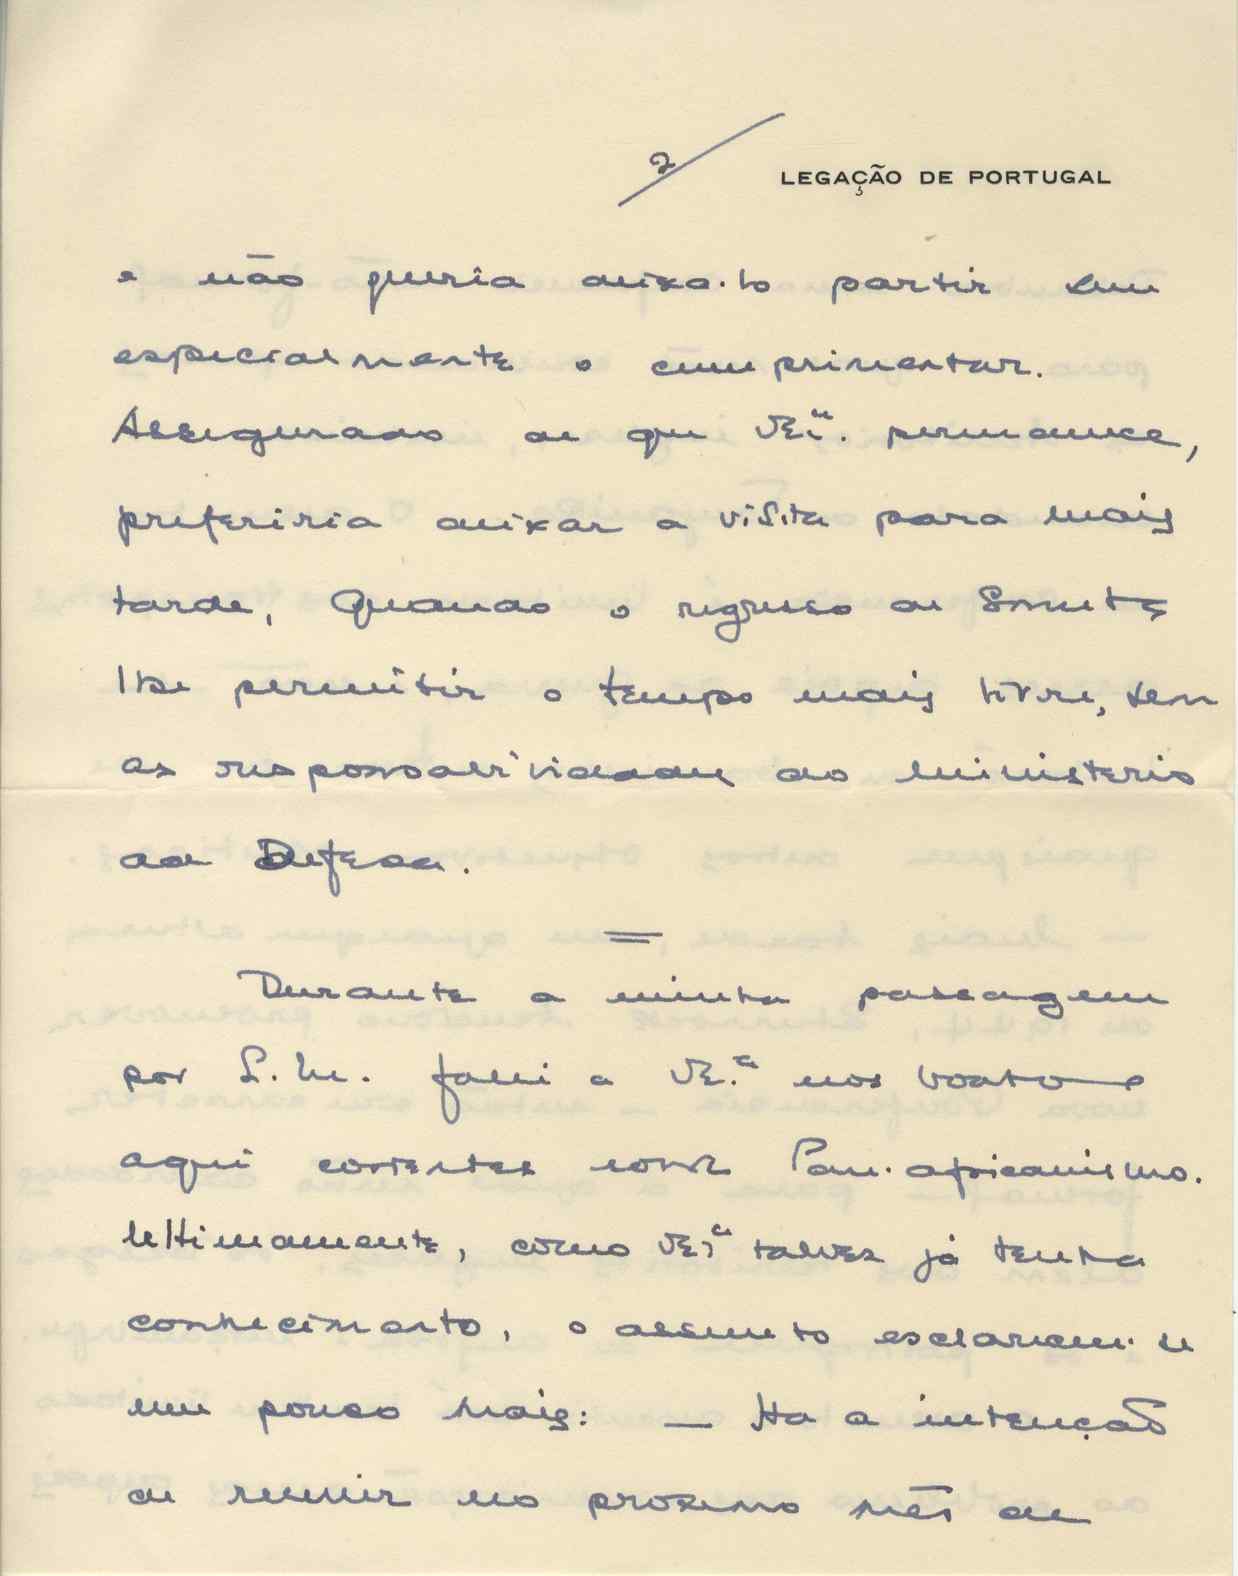 2/
LEGAÇÃO DE PORTUGAL
e não queria deixa-lo partir sem
especialmente o cumprimentar.
Assegurado de que VExª. permanece,
preferiria deixar a visita para mais
tarde, quando o regresso de Smuts
lhe permitir o tempo mais livre, sem
as responsabilidades do ministerio
da Defesa.
=
Durante a minha passagem
por L.M. falei a VE.ª nos boatos
aqui correntes sobre Pan-africanismo.
Ultimamente, como VExª talvez já tenha
conhecimento, o assunto esclareceu-se
um pouco mais: — Ha a intenção
de reunir no proximo mês de